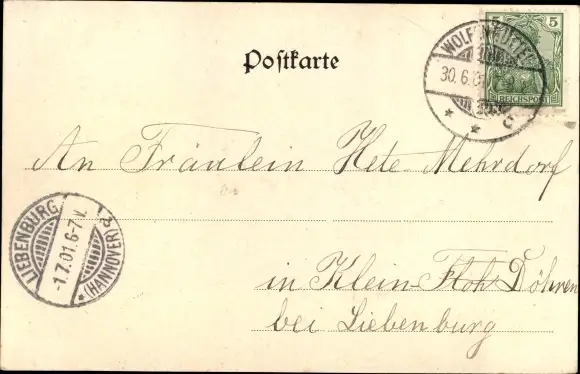 Postkarte
5
REICHSPOST
WOLFENBÜTTEL
30.6.01
An Fräulein Hete Mehrdorf
LIEBENBURG
-1.7.01.6-7V.
*(HANNOVER)a
in Klein-Floh Döhren
bei Liebenburg